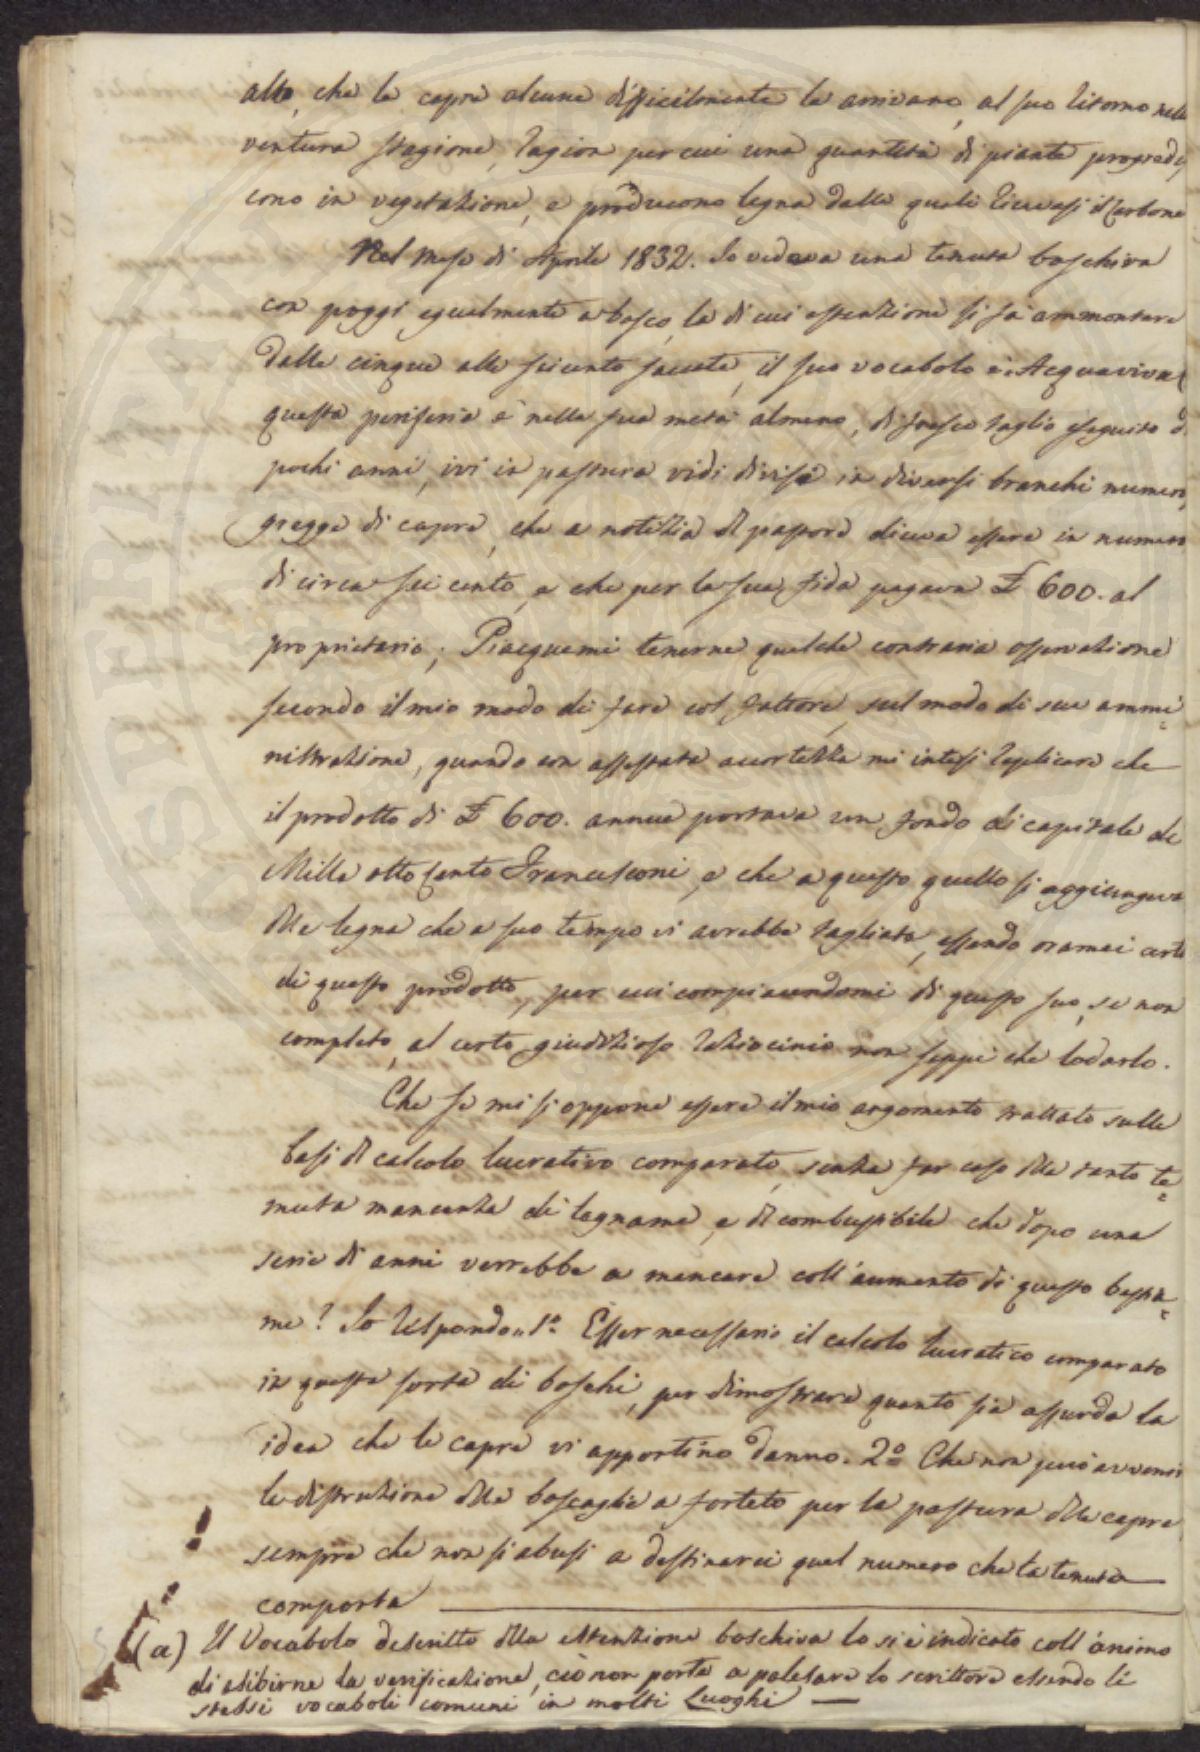 alto, che le capre alcune difficilmente le arrivano, al suo ritorno nella
ventura stagione, ragion per cui una quantità di piante progredi,
cono in vegetazione, e producono legna dalle quali ricevasi il Carbone
Nel mese di Aprile 1832. Io vedeva una tenuta boschiva
con poggi egualmente a bosco, la di cui estenzione si fa ammontare
dalle cinque alle seicento saccate, il suo vocabolo è Acquaviva (
questa periferia è nella sua metà almeno, di fresco taglio eseguito d
pochi anni, ivi in pastura vidi divise in diversi branchi numero,
gregge di capre, che a notizia del pastore diceva essere in numero
di circa sei cento, e che per la sua fida pagava £ 600. al
proprietario; Piacquemi tenerne qualche contraria osservazione
secondo il mio modo di fare col fattore, sul modo di sua ammi=
nistrazione, quando con assestata accortezza mi intesi replicare che
il prodotto di £ 600. annue portava un fondo di capitale di
Mille otto cento Francesconi, e che a questo quello si aggiungeva
della legna che a suo tempo vi avrebbe tagliata, essendo oramai certo
di questo prodotto, per cui compiacendomi di questo suo, se non
completo, al certo giudizioso raziocinio non seppi che lodarlo.
Che se mi si oppone essere il mio argomento trattato sulle
basi di calcolo lucrativo comparato, senza far caso della tanto te=
muta mancanza di legname, e di combustibile che dopo una
serie di anni verrebbe a mancare coll'aumento di questo bestia=
me? Io rispondo, 1º Esser necessario il calcolo lucrativo comparato
in questa sorta di boschi, per dimostrare quanto sia assurda la
idea che le capre vi apportino danno. 2º Che non può avvenir
la distruzione delle boscaglie a forteto per la pastura delle capre
sempre che non si abusi a destinarci quel numero che la tenuta
comporta
(a) Il Vocabolo descritto della estenzione boschiva lo si è indicato coll'animo
di esibirne la verificazione, ciò non porta a palesare lo scrittore essendo li
stessi vocaboli comuni in molti Luoghi